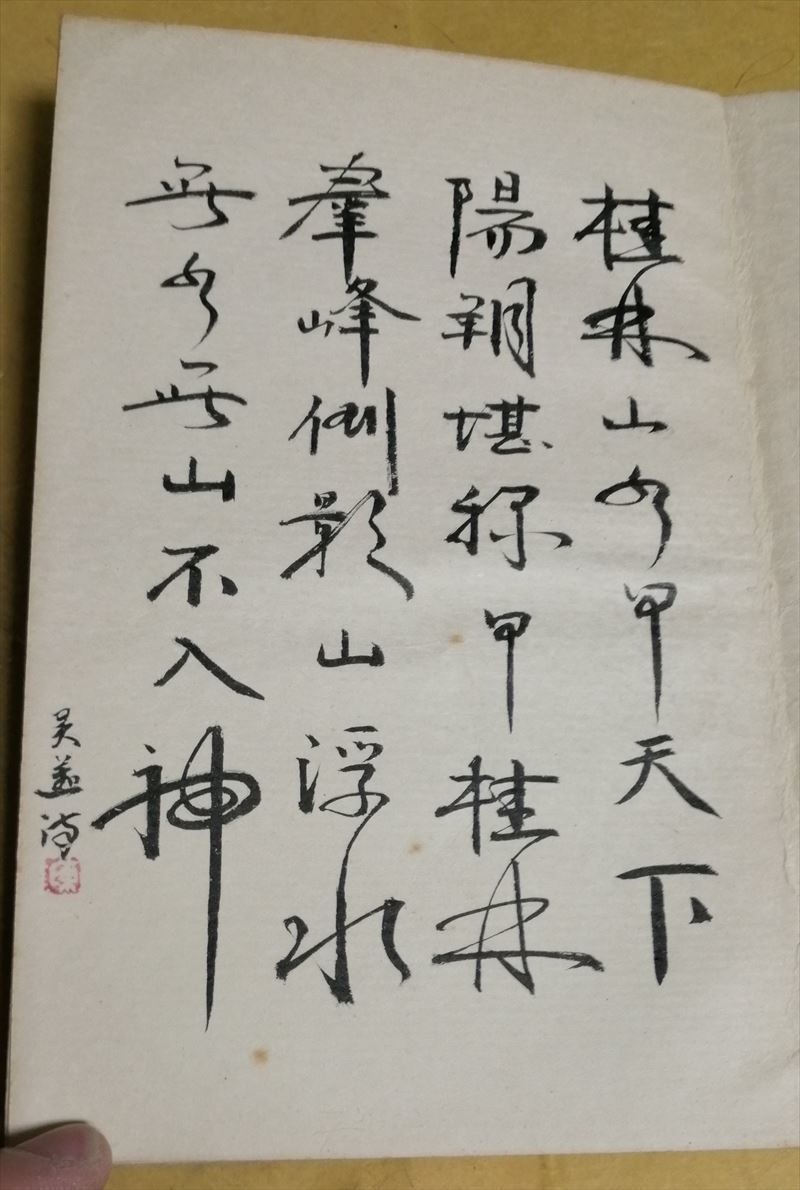 桂林山水甲天下
陽朔堪称甲桂林
羣峰倒影山浮水
無水無山不入神
吴邁诗